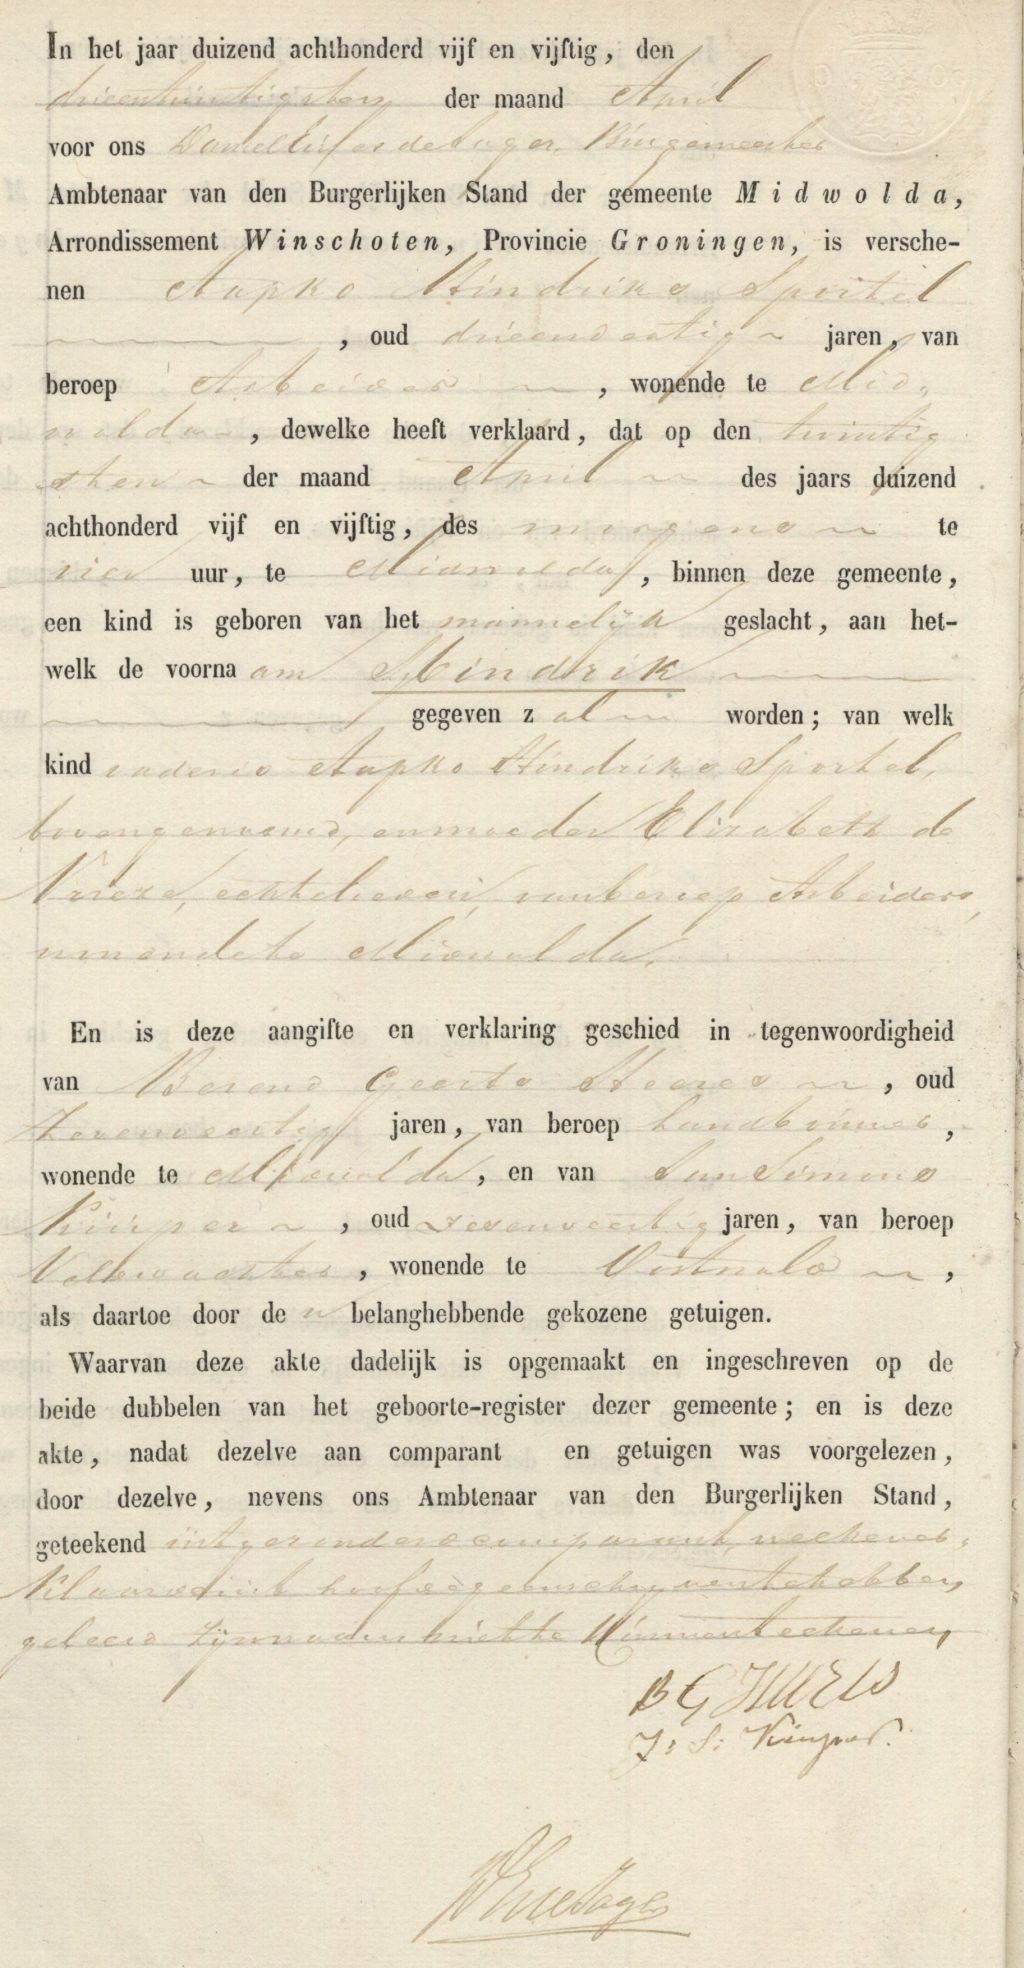 In het jaar duizend achthonderd vijf en vijftig, den
drieentwintigsten der maand April
voor ons de Jager, Burgemeester
Ambtenaar van den Burgerlijken Stand der gemeente Midwolda,
Arrondissement Winschoten, Provincie Groningen, is versche-
nen Aapko Hindriks Sportel
, oud drieenveertig jaren, van
beroep Arbeider, wonende te Mid„
wolda, dewelke heeft verklaard, dat op den twintig
sten der maand April des jaars duizend
achthonderd vijf en vijftig, des morgens te
vier uur, te Midwolda, binnen deze gemeente,
een kind is geboren van het mannelijk geslacht, aan het-
welk de voornaam Hindrik
gegeven zal worden; van welk
kind vader is Aapko Hindriks Sportel,
bovengenoemd, en moeder Elizabeth de
Vrieze, echtelieden, van beroep Arbeiders,
wonende te Midwolda.
En is deze aangifte en verklaring geschied in tegenwoordigheid
van Berend Geerts Heeres, oud
zevenveertig jaren, van beroep landbouwer,
wonende te Midwolda, en van Jan Simons
Kuiper, oud zevenveertig jaren, van beroep
Veldwachter, wonende te Oostwold,
als daartoe door de n belanghebbende gekozene getuigen.
Waarvan deze akte dadelijk is opgemaakt en ingeschreven op de
beide dubbelen van het geboorte-register dezer gemeente; en is deze
akte, nadat dezelve aan comparant en getuigen was voorgelezen,
door dezelve, nevens ons Ambtenaar van den Burgerlijken Stand,
geteekend uitgezonderd comparant, welke ver-
klaarde uit hoofde geen schrijven te hebben
geleerd zijn naam niet te kunnen teekenen
B G Heeres
J: S: Kuiper.
de Jager